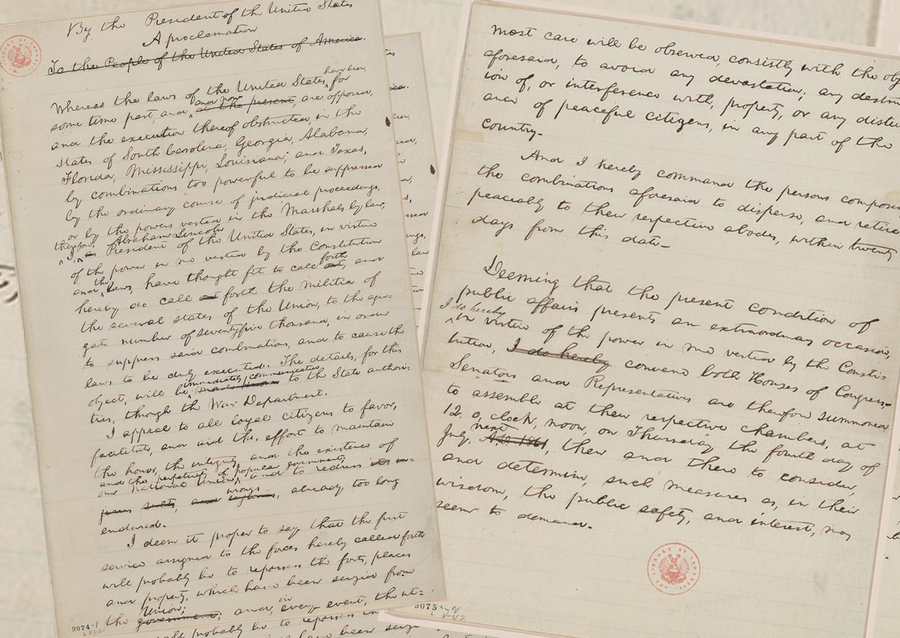 By the President of the United States
A proclamation
To the People of the United States of America.
Whereas the laws of the United States, have been, for
some time past, and now are at the present, are opposed,
and the execution thereof obstructed, in the
States of South Carolina, Georgia, Alabama,
Florida, Mississippi, Louisiana, and Texas,
by combinations too powerful to be suppressed
by the ordinary course of judicial proceedings,
or by the powers vested in the Marshals by law,
therefore, I, Abraham Lincoln
President of the United States, in virtue
of the power in me vested by the Constitution
and the laws, have thought fit to call forth, and
hereby do call forth, the militia of
the several States of the Union, to the aggre
gate number of seventyfive thousand, in order
to suppress said combinations, and to cause the
laws to be duly executed. The details, for this
object, will be immediately communicated to the State authori
ties, through the War Department.
I appeal to all loyal citizens to favor,
facilitate, and aid this effort to maintain
the honor, the integrity and the existence of
our National Union, and the perpetuity of popular government;
and to redress
wrongs, already too long
endured.
I deem it proper to say that the first
service assigned to the forces hereby called forth
will probably be to repossess the forts, places
and property, which have been seized from
the Union; government; and, in every event, the ut-
most care will be observed, consistly with the obj
aforesaid, to avoid any devastation; any destruc
ion of, or interference with, property, or any distur
ance of peaceful citizens, in any part of the
country.
And I hereby command the persons compos
the combinations aforesaid to disperse, and retire
peaceably to their respective abodes, within twenty
days from this date.
Deeming that the present condition of
public affairs presents an extraordinary occasion,
I do hereby
in virtue of the power in me vested by the Consti-
tution, I do hereby convene both Houses of Congress.
Senators and Representatives are therefore summoned
to assemble at their respective chambers, at
12 o,clock, noon, on Thursday the fourth day of
July, next A.D. 1861, then and there to consider
and determine, such measures as, in their
wisdom, the public safety, and interest, may
seem to demand.